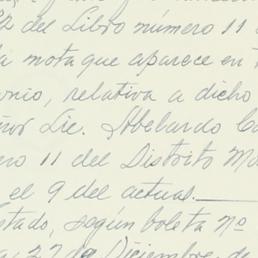 2 del Libro número 11
nota que aparece en
relativa a dicho
Lic. Abelardo
11 del Distrito
el 9 del actual.
según boleta Nº
27 de Diciembre, de